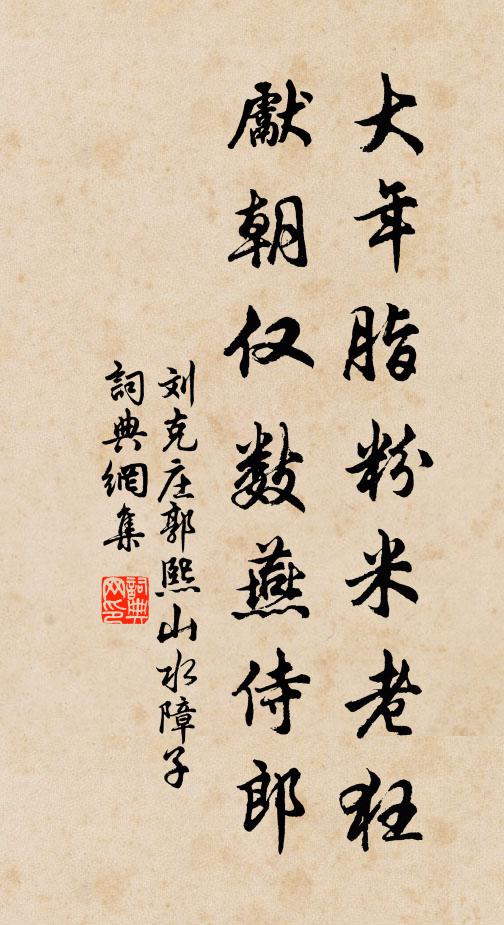 大年脂粉米老狂
獻朝仅數燕侍郎
刘克庄郭熙山水障子
詞典網集
詞典网印